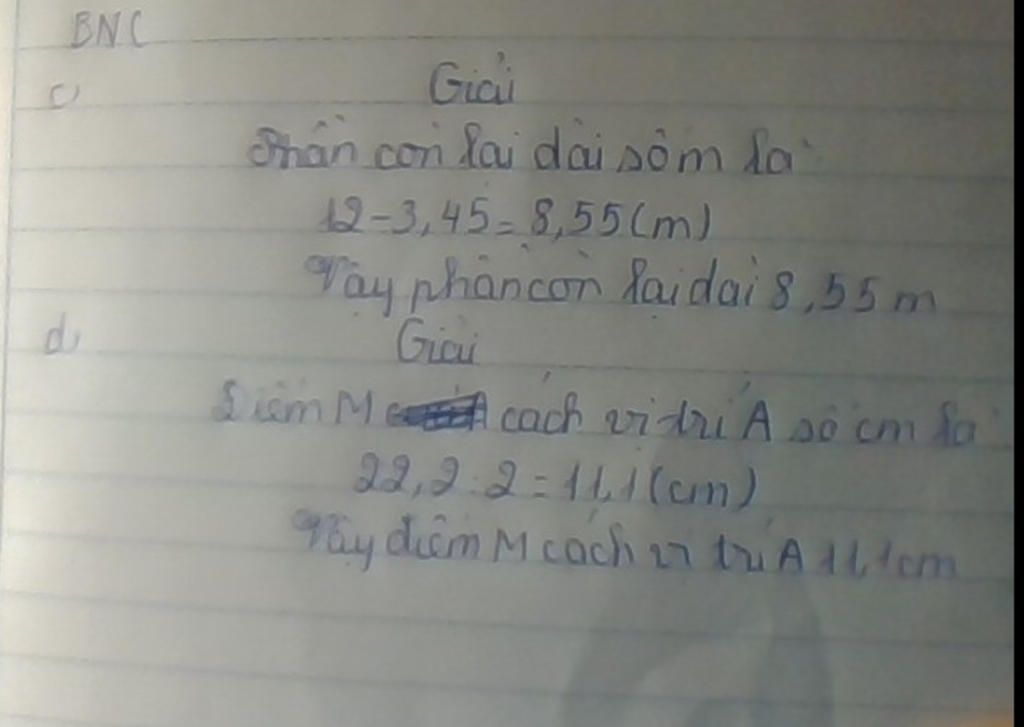 BNC
c)
Giải
Phần còn lại dài số m là
12-3,45=8,55(m)
Vậy phần còn lại dài 8,55 m
d,
Giải
Điểm M cách vị trí A số cm là
22,2:2=11,1(cm)
Vậy điểm M cách vị trí A 11,1cm